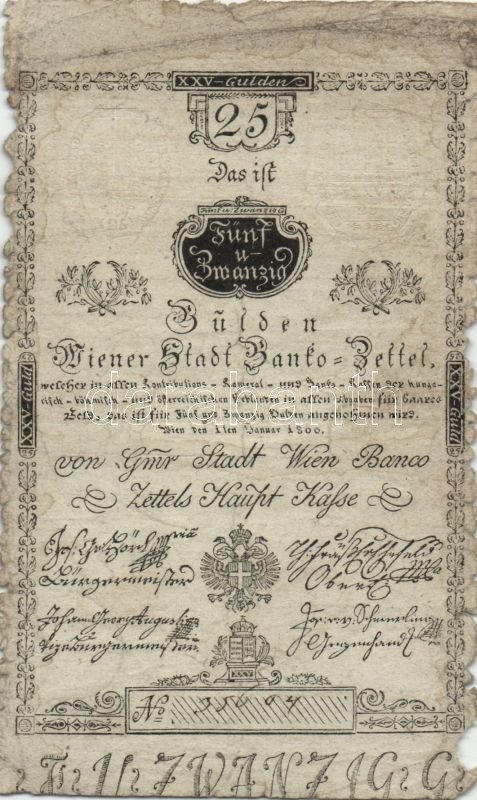 XXV-Gulden
25
Das ist
Fünf u. Zwanzig
Fünf
u
Zwanzig
Gulden
Wiener Stadt Banko-Zettel,
welcher in allen Kontributions- Kameral- und Banko-Kassen der hunga-
risch- böhmisch- und österreichischen Erblanden in allen Abgaben für baares
Geld, das ist für Fünf und Zwanzig Gulden angenohmen wird.
Wien den 1ten Januar 1800.
von Gmr Stadt Wien Banco
Zettels Haupt Kasse
XXV-Guld
XXV-Guld
Bürgermeister
Johann Georg Augusti
Vizebürgermeister
Gegenhand
XXV
No. 35604
F U ZWANZIG G